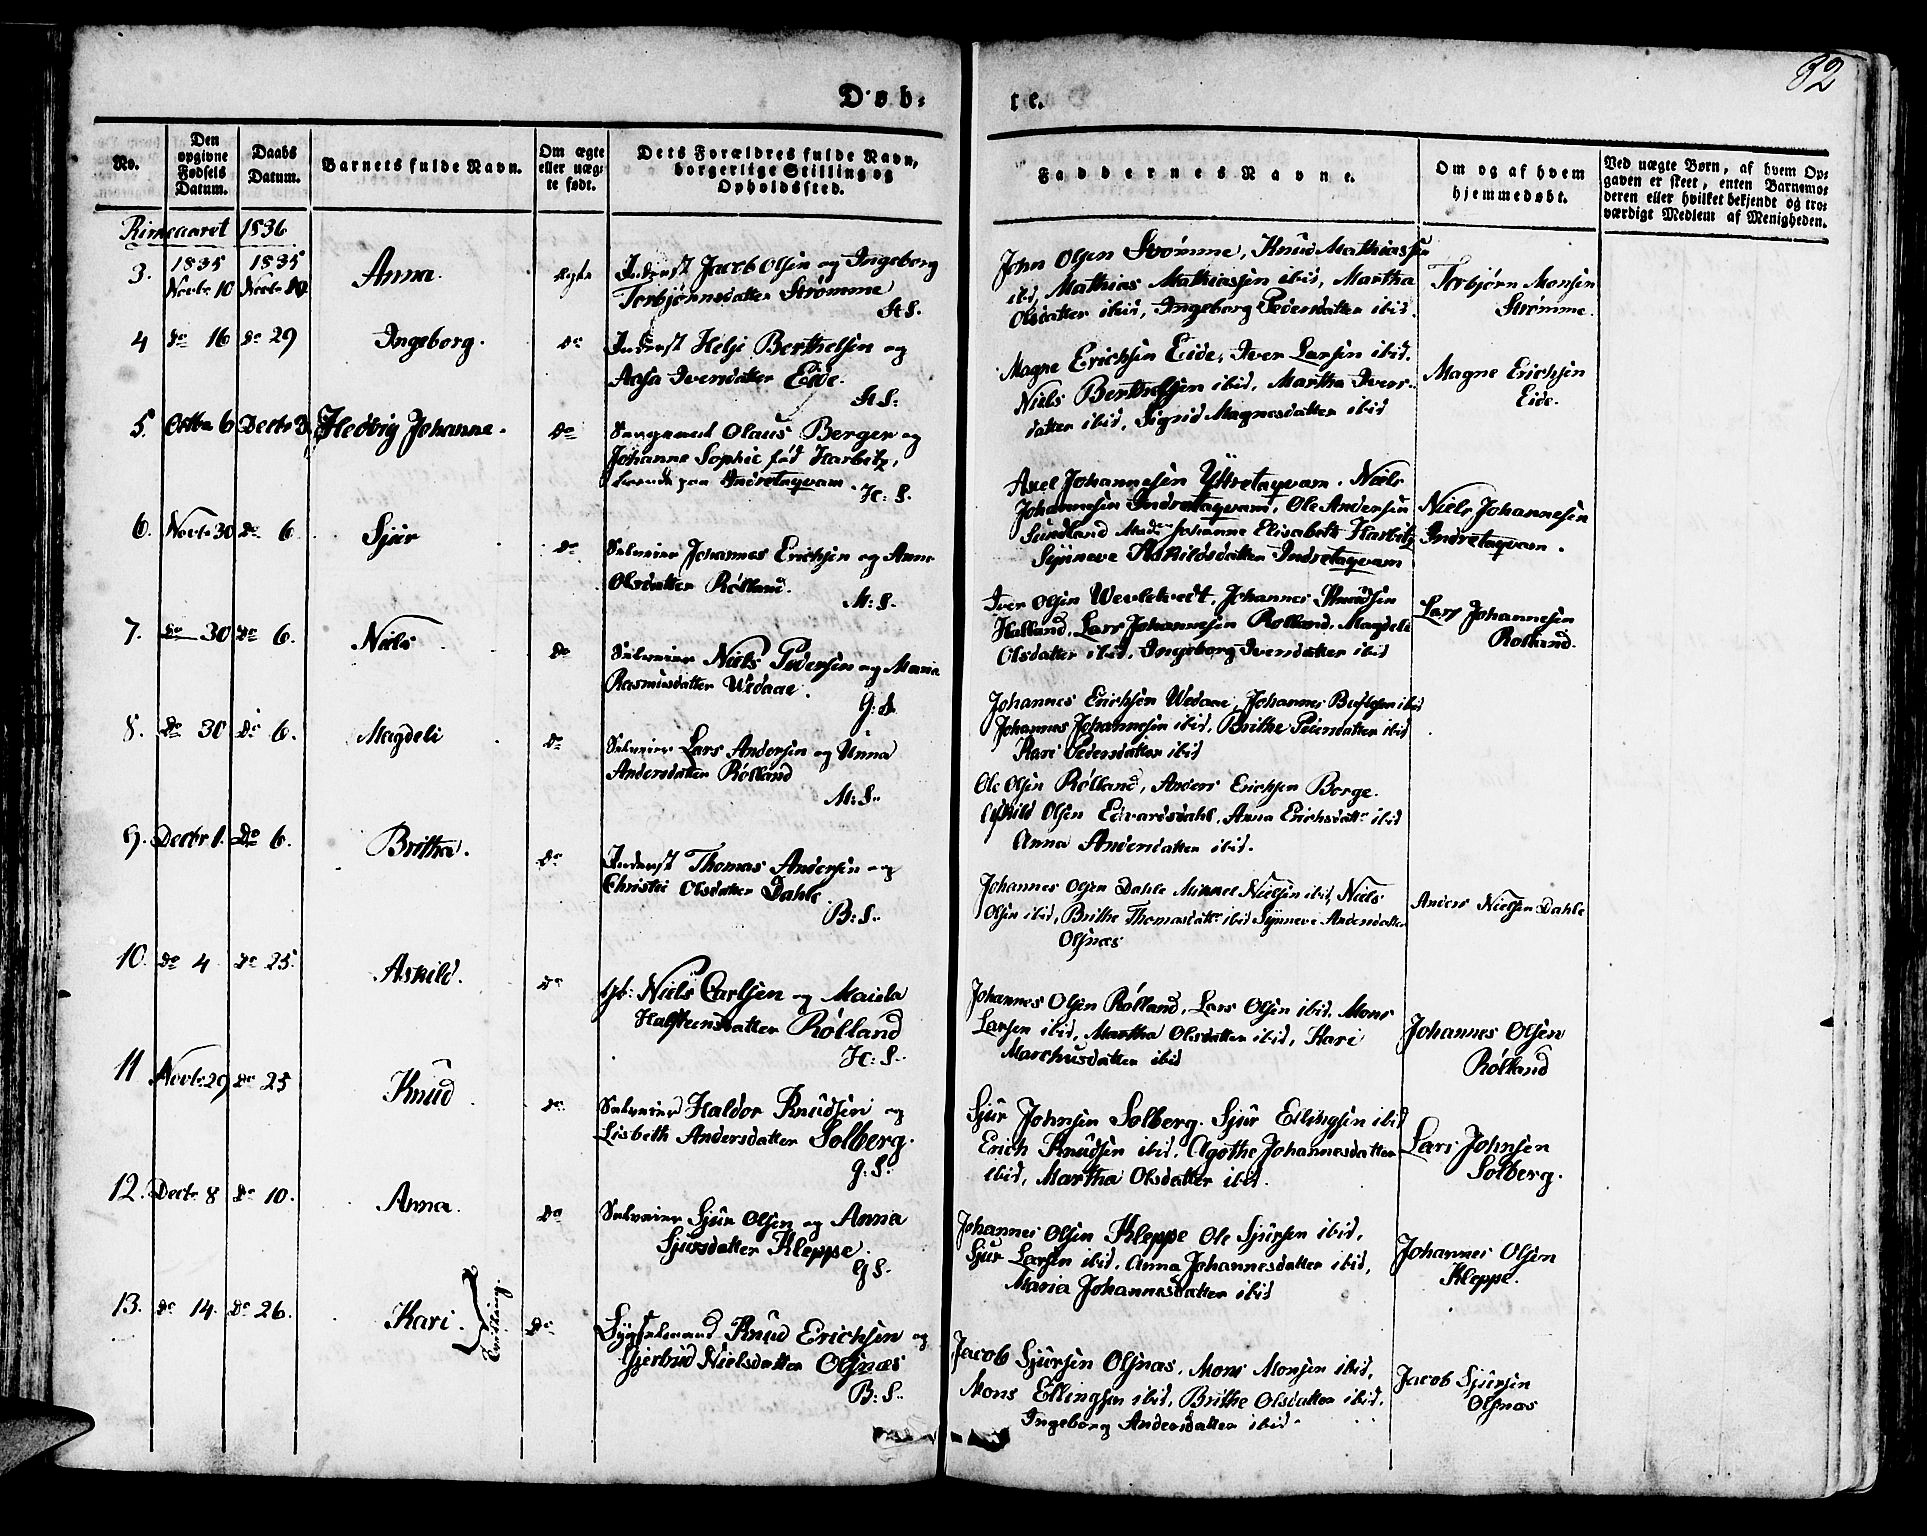 82
Døb-
te.
No.
Den opgivne Fødsels Datum.
Daabs Datum.
Barnets fulde Navn.
Om ægte eller uægte født.
Dets Forældres fulde Navn, borgerlige Stilling og Opholdssted.
Faddernes Navne.
Om og af hvem hjemmedøbt.
Ved uægte Børn, af hvem Opgaven er skeet, enten Barnemoderen eller hvilket bekjendt og troværdigt Medlem af Menigheden.
Kirkeaaret 1836
3. 1835 Novbr 10 1835 Novbr Anna. Ægte
Inderst Jacob Olsen og Ingeborg
Torbjørnsdatter Strømme
H.S.
John Olsen Strømme, Knud Mathiassen
ibid, Mathias Mathiassen ibid, Martha
Olsdatter ibid, Ingeborg Pedersdatter ibid.
Torbjørn Monsen
Strømme.
4 do 16 do 29 Ingeborg. do
Inderst Helje Berthelsen og
Aasa Iversdatter Eide.
H.S.
Magne Erichsen Eide, Iver Larsen ibid.
Niels Berthelsen ibid, Martha Ivers-
datter ibid, Sigrid Magnesdatter ibid
Magne Erichsen
Eide.
5. Octbr 6 Decbr 3 Hedvig Johanne. do
Olaus Berger og
Johanne Sophie fød Harbitz,
boende paa Indretaqvam.
H:S.
Axel Johannesen Yttretaqvam. Niels
Johannesen Indretaqvam, Ole Andersen
Sundland Madm Johanne Elisabeth Harbitz
Synneve Askildsdatter Indretaqvam
Niels Johannesen
Indretaqvam.
6. Novbr 30 do 6 Sjur do
Selveier Johannes Erichsen og Anne
Olsdatter Rølland.
M:S.
Iver Olsen Wevletvedt, Johannes Knudsen
Halland, Lars Johannesen Rølland, Magdeli
Olsdatter ibid, Ingeborg Iversdatter ibid
Lars Johannesen
Rølland.
7. do 30 do 6. Niels do
Selveier Niels Pedersen og Maria
Rasmusdatter Wedaae.
G:S.
Johannes Erichsen Wedaae, Johannes ibid
Johannes Johannesen ibid, Brithe Pedersdatter ibid
Kari Pedersdatter ibid
8. do 30 do 6. Magdeli do
Selveier Lars Andersen og Anna
Andersdatter Rølland
M:S.
Ole Olsen Rølland, Anders Erichsen Berge.
Olsen Edvardsdahl, Anna Erichsdattr ibid
Anna Andersdatter ibid.
9. Decbr 1. do 6. Britha. do
Inderst Thomas Andersen og
Christi Olsdatter Dahle.
B:S.
Johannes Olsen Dahle Nielsen ibid, Niels
Olsen ibid, Brithe Thomasdattr ibid Synneve Andersdatter
Olsnæs
Anders Nielsen Dahle
10. do 4 do 25. Askild. do
Niels Carlsen og
Halsteensdatter Rølland
H:S.
Johannes Olsen Rølland, Lars Olsen ibid, Mons
Larsen ibid, Martha Olsdatter ibid, Kari
Marchusdatter ibid
Johannes Olsen
Rølland
11 Novbr 29 do 25 Knud do
Selveier Haldor Knudsen og
Lisbeth Andersdatter Solberg.
G:S.
Sjur Johnsen Solberg. Sjur Ellingsen ibid
Erich Knudsen ibid, Agothe Johannesdatter
ibid, Martha Olsdatter ibid.
Lars Johnsen
Solberg.
12. Decbr 8 do 10. Anna. do
Selveier Sjur Olsen og Anna
Sjursdatter Kleppe.
G S.
Johannes Olsen Kleppe Ole Sjursen ibid,
Sjur Larsen ibid, Anna Johannesdatter ibid,
Maria Johannesdatter ibid
Johannes Olsen
Kleppe.
13. do 14. do 26. Kari. Tvilling. do
Knud Erichsen og
Gjertrud Nielsdatter Olsnæs
B:S.
Jacob Sjursen Olsnæs, Mons Monsen ibid,
Mons Ellingsen ibid, Brithe Olsdatter ibid,
Ingeborg Andersdatter ibid
Jacob Sjursen
Olsnæs